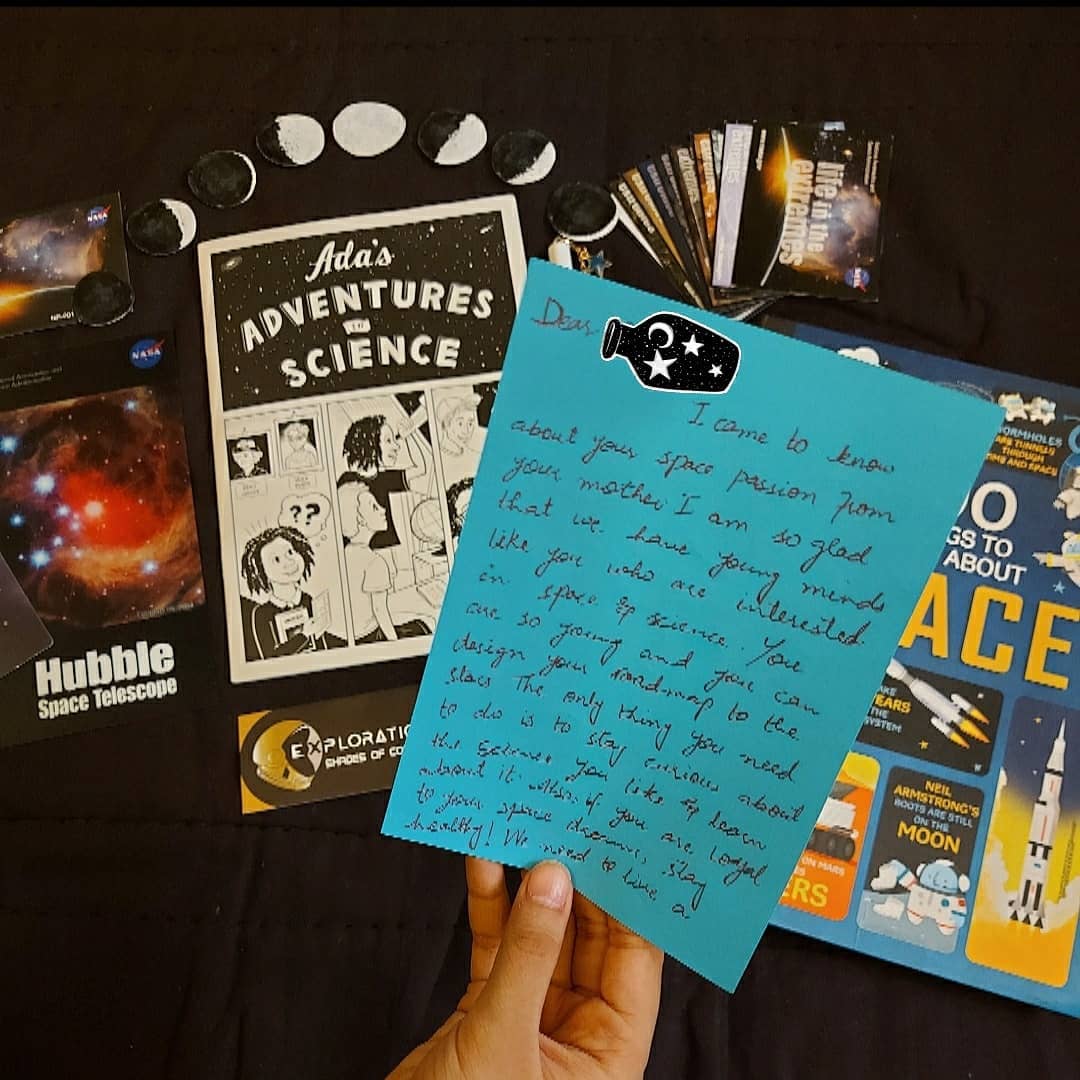 NASA
NASA
Hubble
Space Telescope
Ada's
ADVENTURES
IN
SCIENCE
??
EXPLORATIO
SHADES OF CO
life in the
extremes
NASA
Dear
I came to know
about your space passion from
your mother. I am so glad
that we have young minds
like you who are interested
in space & science. You
are so young and you can
design your road-map to the
stars. The only thing you need
to do is to stay curious about
the science you like & learn
about it. Also, if you are loyal
to your space dreams, stay
healthy! We need to live a
WORMHOLES
ARE TUNNELS
THROUGH
TIME AND SPACE
OO
GS TO
ABOUT
ACE
EARS
THE
SYSTEM
NEIL
ARMSTRONG'S
BOOTS ARE STILL
ON THE
MOON
ON MARS
ERS